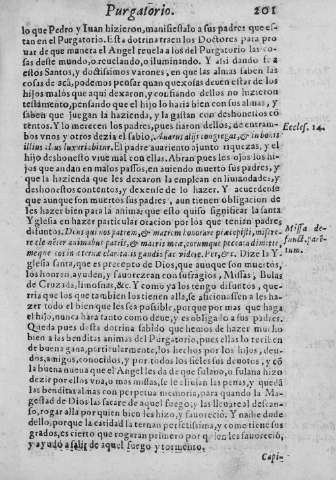 Purgatorio. 201
lo que Pedro y Iuan hizieron, manifiestalo a sus padres que es-
tan en el Purgatorio. Esta dotrina traen los Doctores para pro
uar de que manera el Angel reuela a los del Purgatorio las co-
sas deste mundo, o reuelando, o iluminando. Y assi dando fe a
estos Santos, y doctissimos varones, en que las almas saben las
cosas de acà, podemos pensar quan quexosas deuen estar de los
hijos malos que aqui dexaron, y confiando dellos no hizieron
testamento, pensando que el hijo lo haria bien con sus almas, y
saben que juegan la hazienda, y la gastan con deshonestos cõ
tentos. Y lo merecen los padres, pues fiaron dellos, de entram-
bos vnos y otros dezia el sabio, Auarus alijs congregat, & in bonis
illius alius luxuriabitur. El padre auariento ajunto riquezas, y el
hijo deshonesto viue mal con ellas. Abran pues los ojos los hi-
jos que andan en malos passos, en auiendo muerto sus padres, y
que la hazienda que les dexaron la emplean en liuiandades, y
deshonestos contentos, y dexense de lo hazer. Y acuerdense
que aunque son muertos sus padres, aun tienen obligacion de
les hazer bien para la anima: que esso quiso significar la santa
Yglesia en hazer particular oracion por los que tenian padres
difuntos. Deus qui nos patrem, & matrem honorare præcepisti, misere-
re clemẽter animabus patris, & matris meæ, eorumque peccata dimitte,
meque eos in æternæ claritatis gaudio fac videre. Per, &c. Dize la Y-
glesia santa, que es precepto de Dios, que aunque son muertos,
los honren, ayuden, y fauorezcan con sufragios, Missas, Bulas
de Cruzada, limosnas, &c. Y como ya los tengo difuntos, que-
rria que los que tambien los tienen alla, se aficionassen a les ha-
zer todo el bien que les sea possible, porque por mas que haga
el hijo, nunca hara tanto como deue, y es obligado a sus padres.
Queda pues desta dotrina sabido que hemos de hazer mucho
bien a las benditas animas del Purgatorio, pues ellas lo reciben
de buena gana, particularmente, los hechos por los hijos, deu-
dos, amigos, conocidos, y por todos los fieles sus deuotos, y cõ
la buena nueua que el Angel les da de que fulano, o fulana hizo
dezir por ellos vna, o mas missas, se les aliuian las penas, y quedã
las benditas almas con perpetua memoria, para quando la Ma-
gestad de Dios las sacare de aquel fuego, y las lleuare al descan-
so, rogar alla por quien bien les hizo, y fauorecio. Y nadie dude
dello, porque la caridad la ternan perfectissima, y como tienen sus
grados, es cierto que rogaran primero por quien les fauorecio,
y ayudo a salir de aquel fuego y tormento.
Capi-
Eccles. 14.
Missa de-
funct. parẽ-
tum.